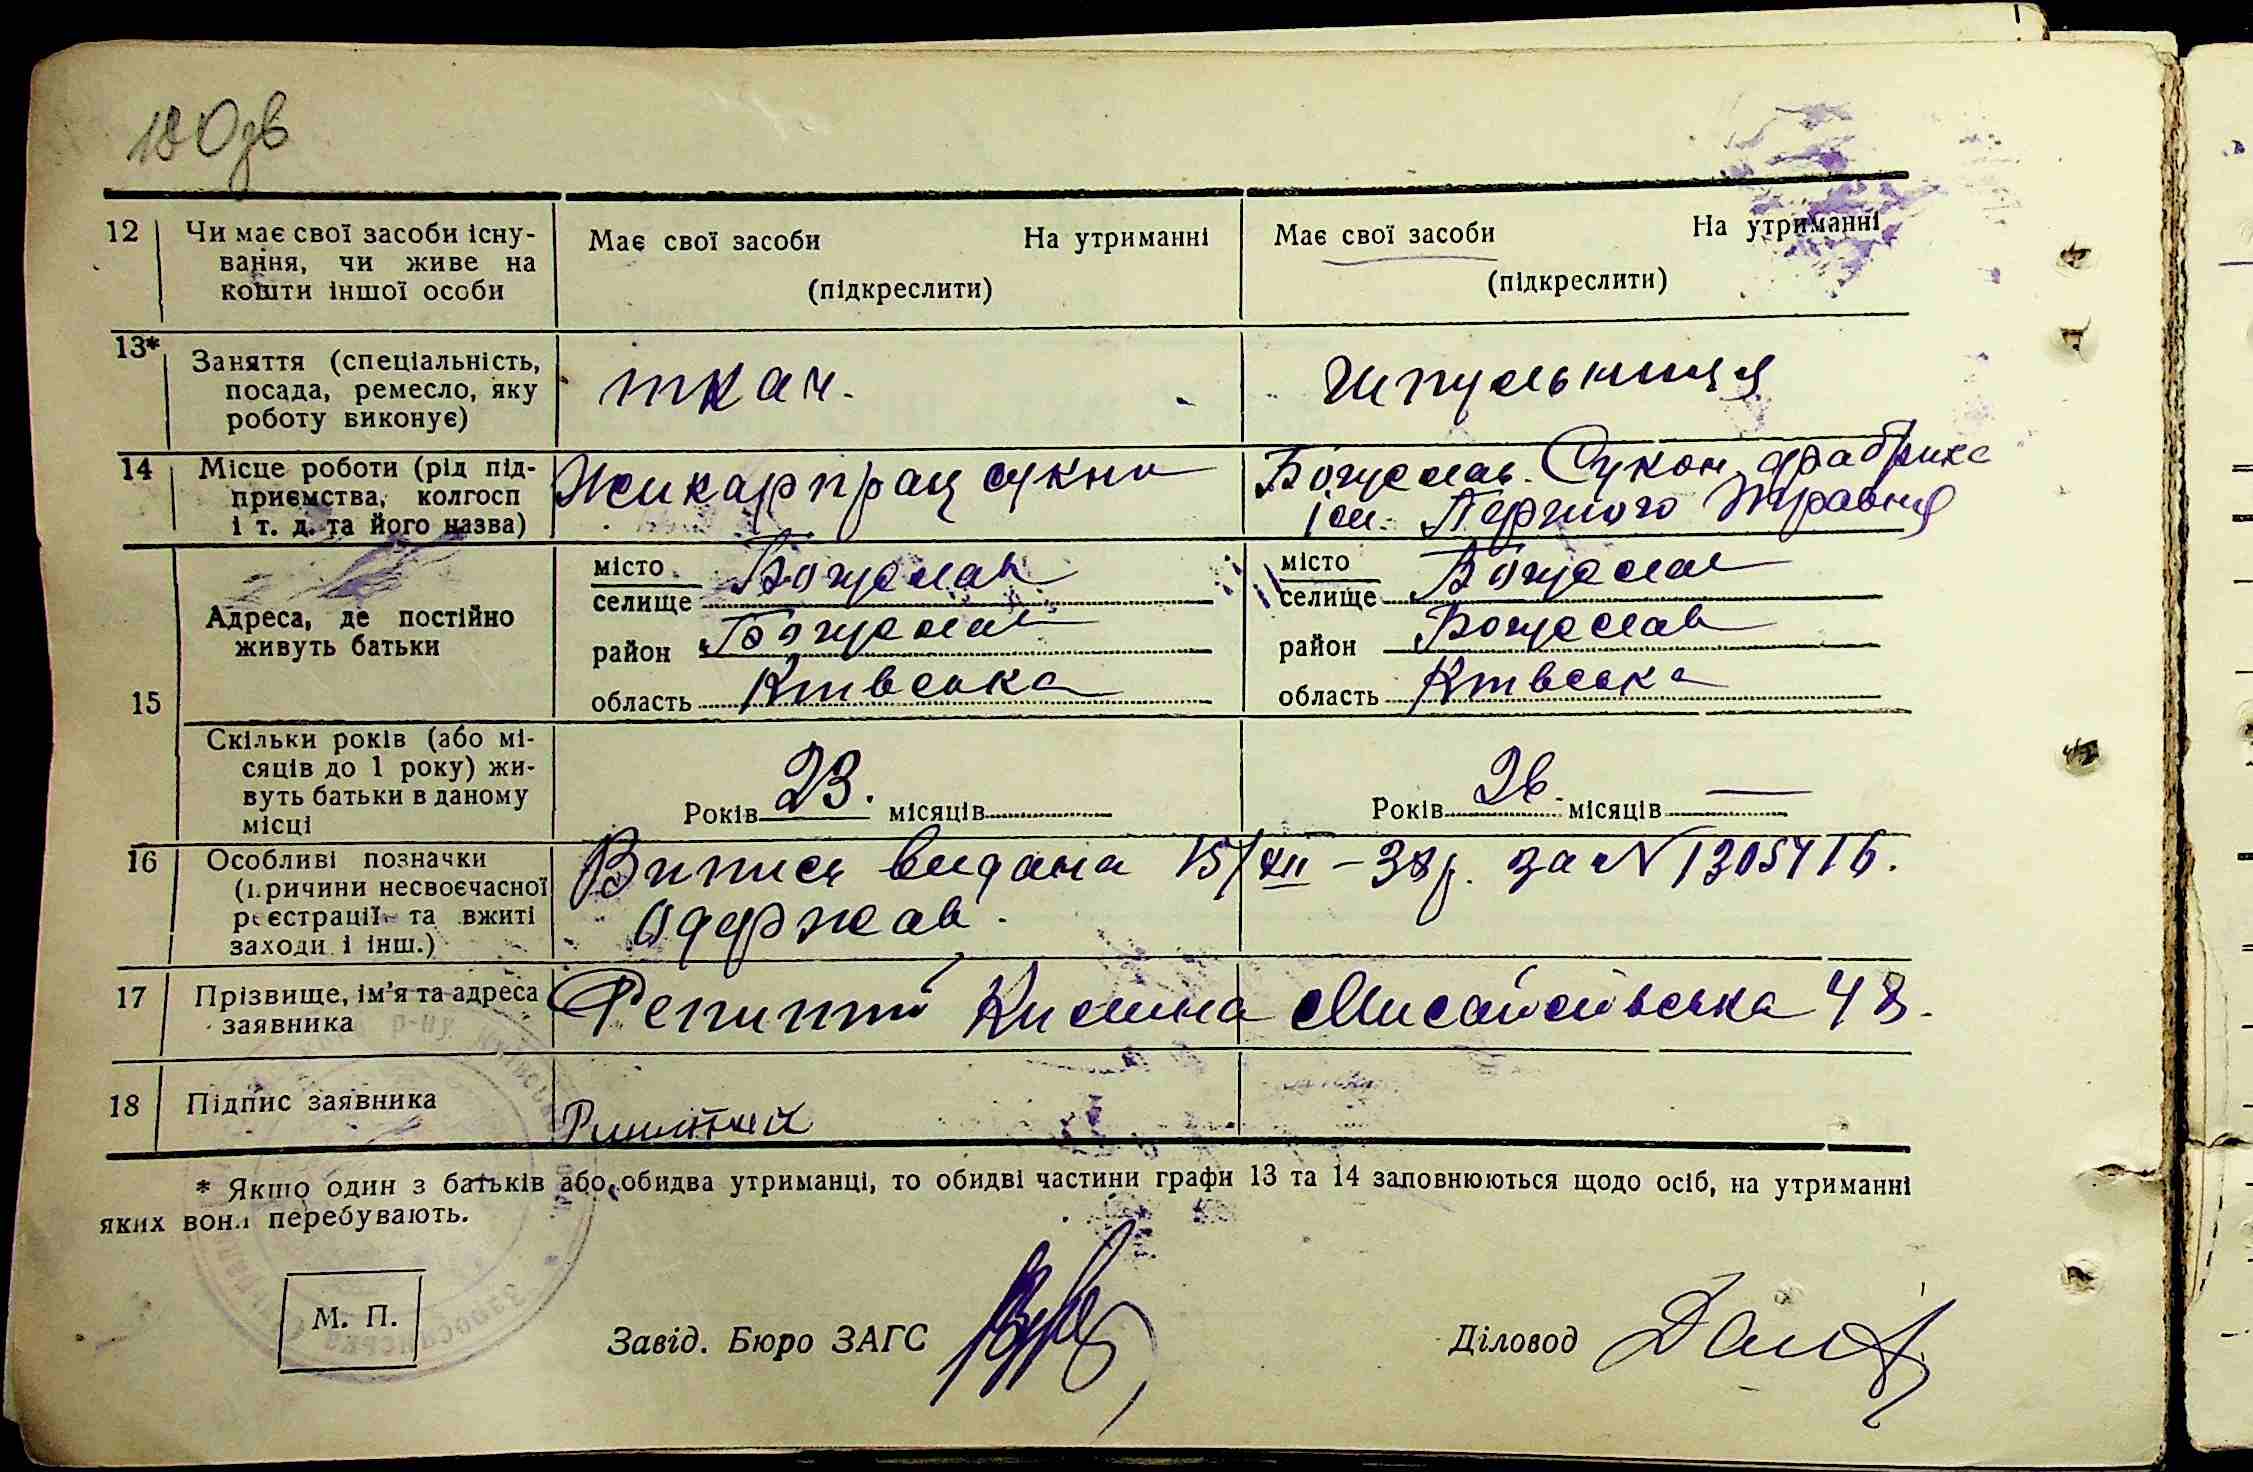 180зв
12 Чи має свої засоби існу-
вання, чи живе на
кошти іншої особи
Має свої засоби На утриманні
(підкреслити)
Має свої засоби На утриманні
(підкреслити)
13* Заняття (спеціальність,
посада, ремесло, яку
роботу виконує)
ткач.
Шпульниця
14 Місце роботи (рід під-
приємства, колгосп
і т. д. та його назва)
сукно
Богуслав. Сукон. фабрика
ім. Першого Травня
15 Адреса, де постійно
живуть батьки
місто
селище Богуслав
район Богуслав
область Київська
місто
селище Богуслав
район Богуслав
область Київська
Скільки років (або мі-
сяців до 1 року) жи-
вуть батьки в даному
місці
Років 23. місяців
Років 26. місяців —
16 Особливі позначки
(причини несвоєчасної
реєстрації та вжиті
заходи і інш.)
Випись видана 15/XII – 38р. за №
Одержав.
17 Прізвище, ім'я та адреса
заявника
48.
18 Підпис заявника
* Якщо один з батьків або обидва утриманці, то обидві частини графи 13 та 14 заповнюються щодо осіб, на утриманні
яких вони перебувають.
М. П.
Завід. Бюро ЗАГС
Діловод